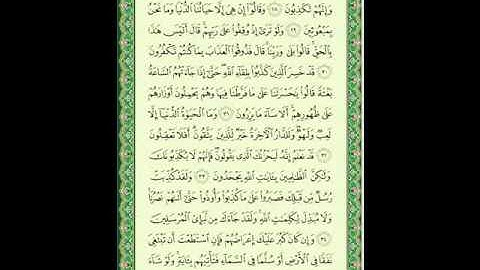 وَإِنَّهُمْ لَكَٰذِبُونَ ٢٨ وَقَالُوٓا۟ إِنْ هِىَ إِلَّا حَيَاتُنَا ٱلدُّنْيَا وَمَا نَحْنُ
بِمَبْعُوثِينَ ٢٩ وَلَوْ تَرَىٰٓ إِذْ وُقِفُوا۟ عَلَىٰ رَبِّهِمْ ۚ قَالَ أَلَيْسَ هَٰذَا
بِٱلْحَقِّ ۚ قَالُوا۟ بَلَىٰ وَرَبِّنَا ۚ قَالَ فَذُوقُوا۟ ٱلْعَذَابَ بِمَا كُنتُمْ تَكْفُرُونَ
٣٠ قَدْ خَسِرَ ٱلَّذِينَ كَذَّبُوا۟ بِلِقَآءِ ٱللَّهِ ۖ حَتَّىٰٓ إِذَا جَآءَتْهُمُ ٱلسَّاعَةُ
بَغْتَةً قَالُوا۟ يَٰحَسْرَتَنَا عَلَىٰ مَا فَرَّطْنَا فِيهَا وَهُمْ يَحْمِلُونَ أَوْزَارَهُمْ
عَلَىٰ ظُهُورِهِمْ ۚ أَلَا سَآءَ مَا يَزِرُونَ ٣١ وَمَا ٱلْحَيَوٰةُ ٱلدُّنْيَآ إِلَّا
لَعِبٌ وَلَهْوٌ ۖ وَلَلدَّارُ ٱلْءَاخِرَةُ خَيْرٌ لِّلَّذِينَ يَتَّقُونَ ۗ أَفَلَا تَعْقِلُونَ
٣٢ قَدْ نَعْلَمُ إِنَّهُۥ لَيَحْزُنُكَ ٱلَّذِى يَقُولُونَ ۖ فَإِنَّهُمْ لَا يُكَذِّبُونَكَ
وَلَٰكِنَّ ٱلظَّٰلِمِينَ بِـَٔايَٰتِ ٱللَّهِ يَجْحَدُونَ ٣٣ وَلَقَدْ كُذِّبَتْ
رُسُلٌ مِّن قَبْلِكَ فَصَبَرُوا۟ عَلَىٰ مَا كُذِّبُوا۟ وَأُوذُوا۟ حَتَّىٰٓ أَتَىٰهُمْ نَصْرُنَا ۚ
وَلَا مُبَدِّلَ لِكَلِمَٰتِ ٱللَّهِ ۚ وَلَقَدْ جَآءَكَ مِن نَّبَإِى۟ ٱلْمُرْسَلِينَ
٣٤ وَإِن كَانَ كَبُرَ عَلَيْكَ إِعْرَاضُهُمْ فَإِنِ ٱسْتَطَعْتَ أَن تَبْتَغِىَ
نَفَقًا فِى ٱلْأَرْضِ أَوْ سُلَّمًا فِى ٱلسَّمَآءِ فَتَأْتِيَهُم بِـَٔايَةٍ ۚ وَلَوْ شَآءَ